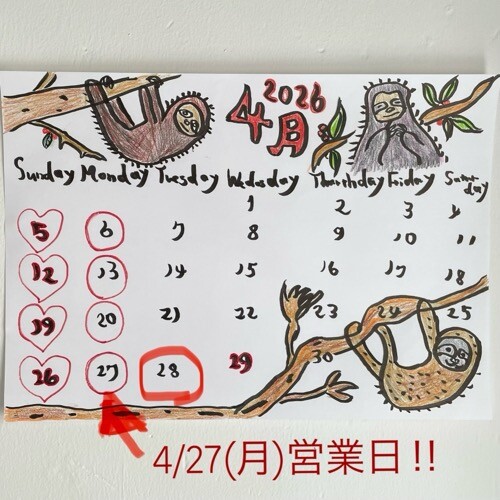 2026
4月
Sunday Monday Tuesday Wedesday Thurthday Friday Saturday
1 2 3 4
5 6 7 8 9 10 11
12 13 14 15 16 17 18
19 20 21 22 23 24 25
26 27 28 29 30
4/27(月)営業日!!